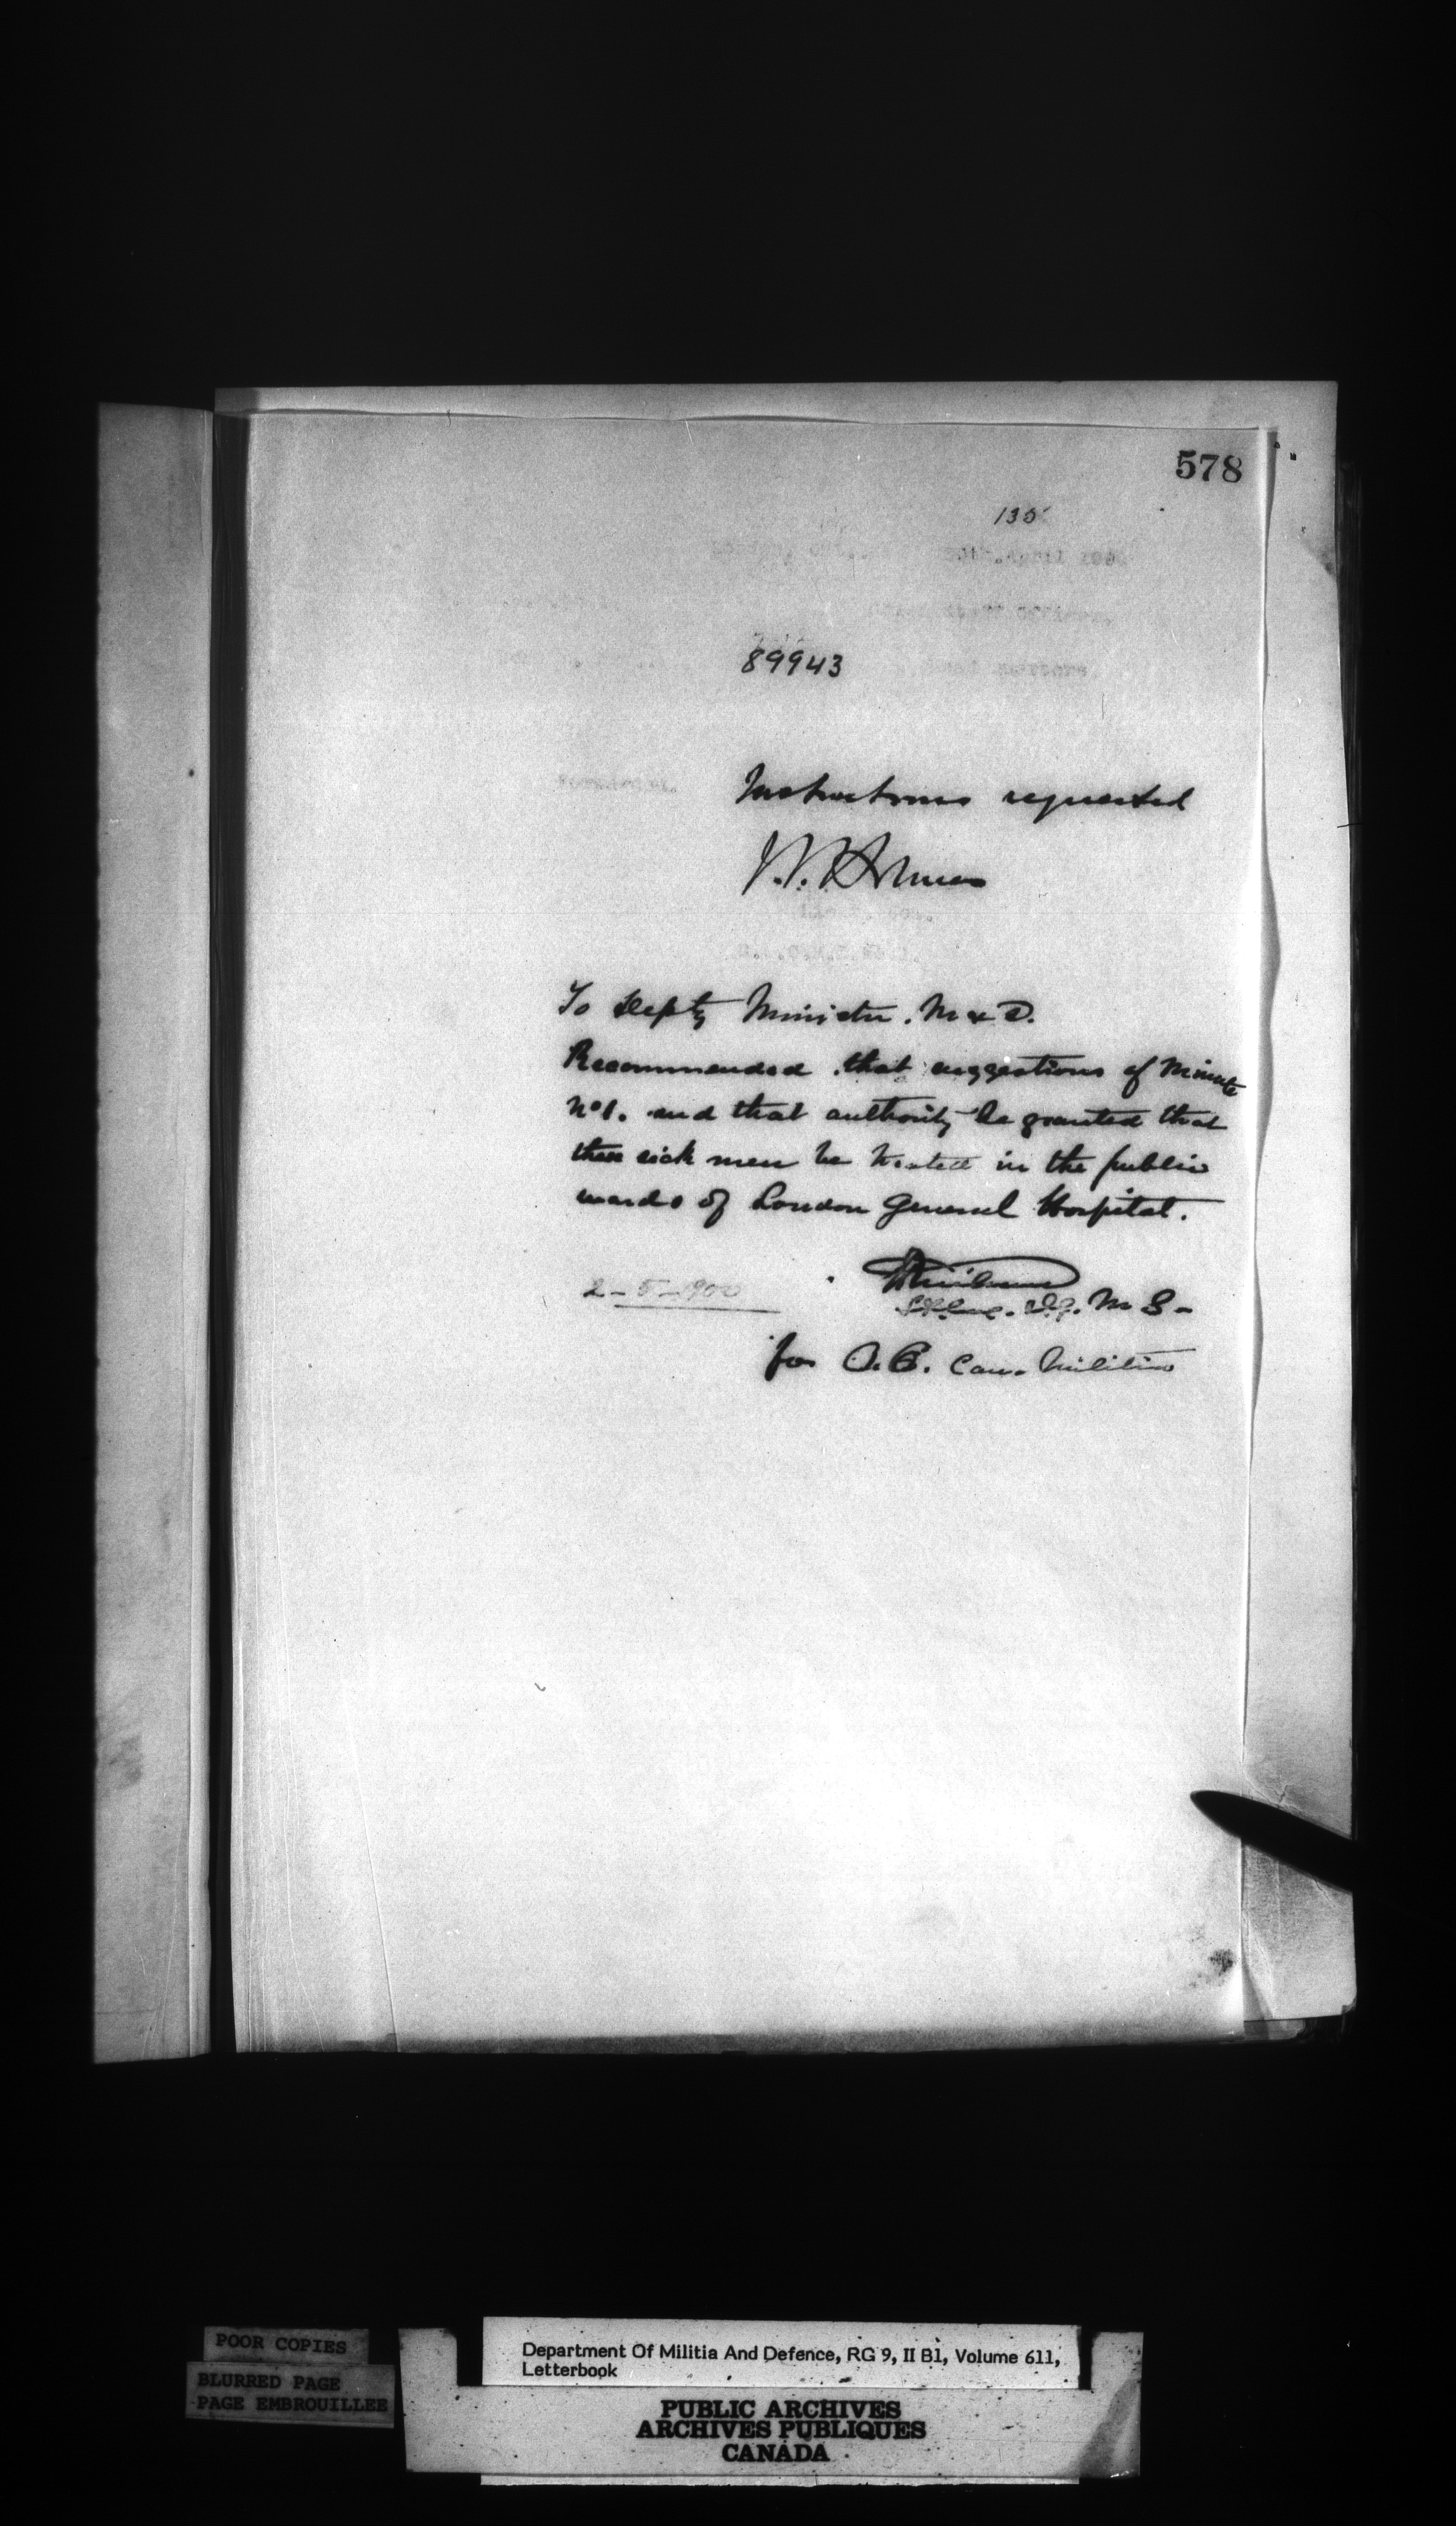 578
135
89943
Instructions requested
To Depty Minister. M & D.
Recommended that suggestions of Minute
No 1. and that authority be granted that
these sick men be treated in the public
wards of London General Hospital.
2-5-1900
D.G. M S-
for O.C. Can. Militia
POOR COPIES
BLURRED PAGE
PAGE EMBROUILLEE
Department Of Militia And Defence, RG 9, II B1, Volume 611,
Letterbook
PUBLIC ARCHIVES
ARCHIVES PUBLIQUES
CANADA